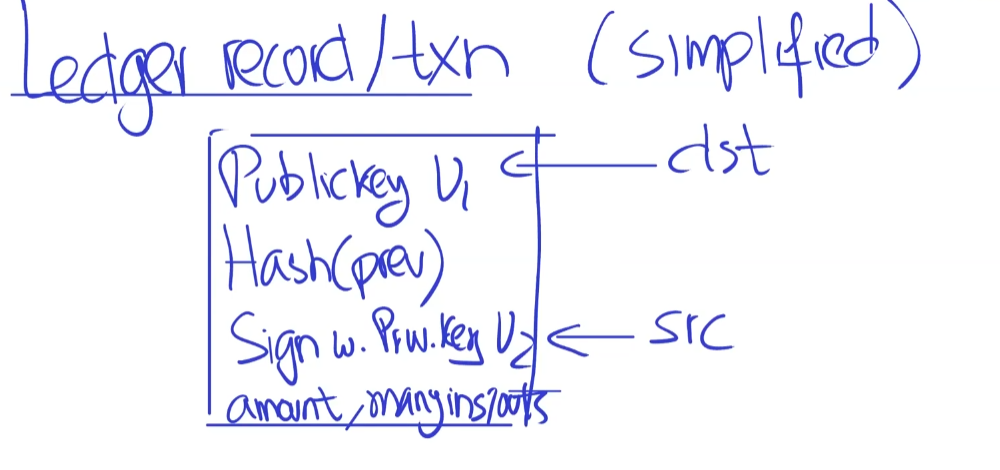 Ledger record/txn (simplified)
Public key U1 ← dst
Hash(prev)
Sign w. Priv. key U2 ← src
amount, many ins/outs